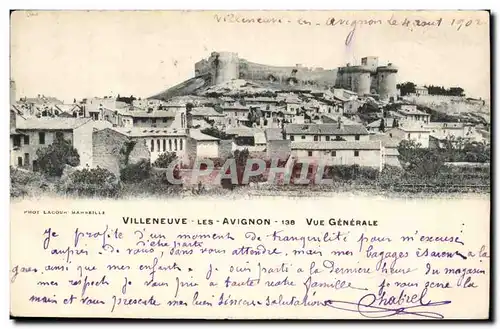 Villeneuve-les-Avignon le 4 août 1902
CPARAMA.COM
PHOT LACOUR MARSEILLE
VILLENEUVE - LES - AVIGNON - 138 VUE GÉNÉRALE
Je profite d'un moment de tranquilité pour m'excuse
d'être partis
auprès de vous sans vous attendre, mais mes bagages étaient a la
gare, ainsi que mes enfants. Je suis parti a la dernière heure du magasin
mes respect je vous prie a toute votre famille. Je vous serre la
main et vous présente mes bien sincères salutations
Chabrel